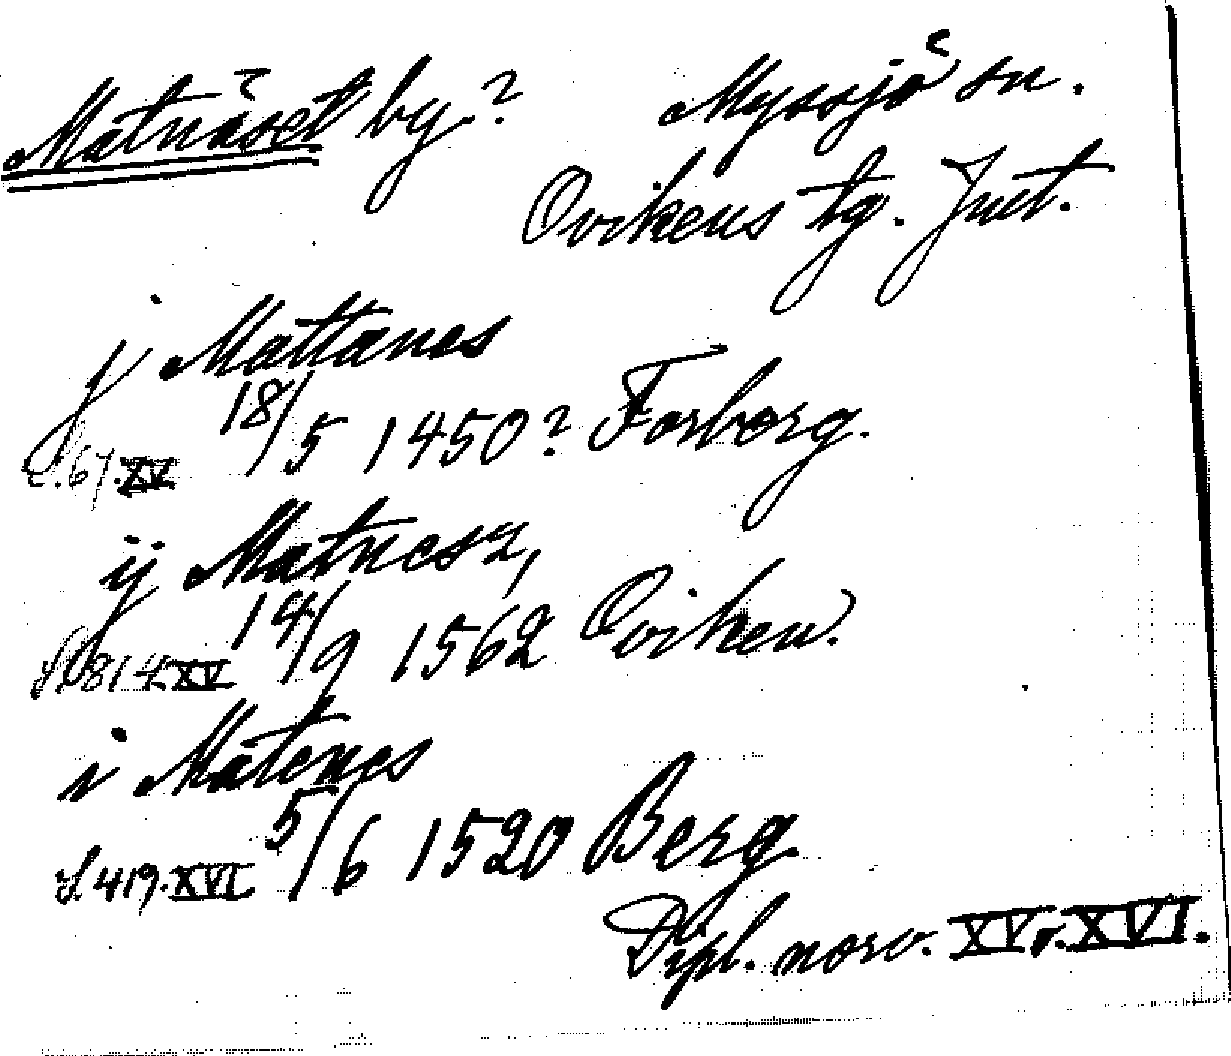 Mätnäset by? Myssjö sn.
Ovikens tg. Jmt.
j Mattanes
18/5 1450? Forberg.
S. 67. XV
ij Matnesz,
14/9 1562 Oviken.
S. 814. XV
i Mätenes
5/6 1520 Berg
S. 419. XVI
Dipl. norv. XV. XVI.